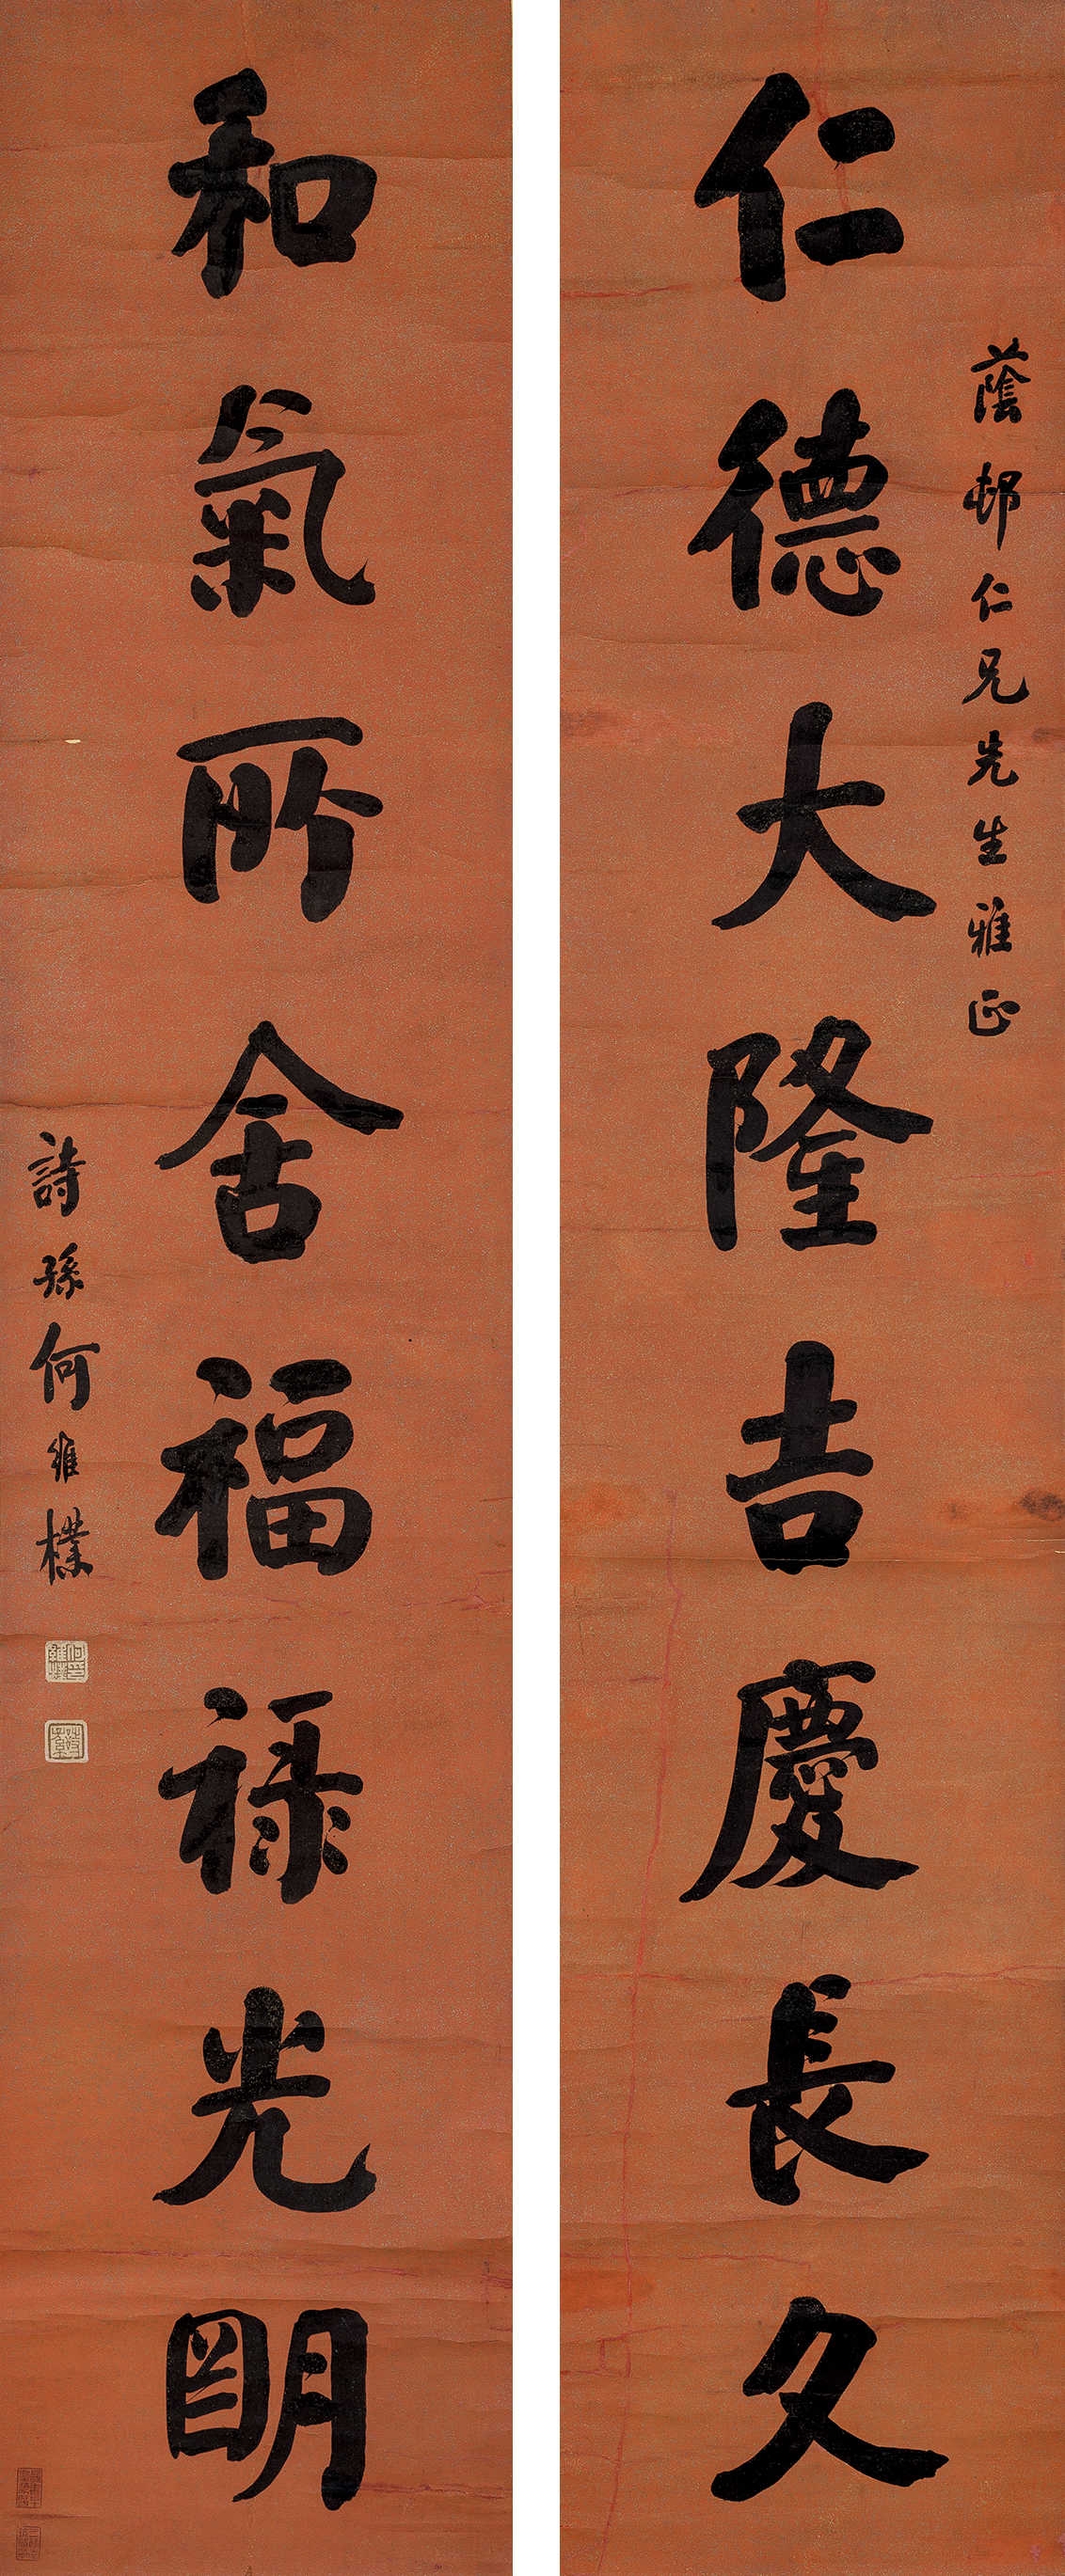 蔭邨仁兄先生雅正
仁德大隆吉慶長久
和氣所舍福祿光明
詩孫何維樸